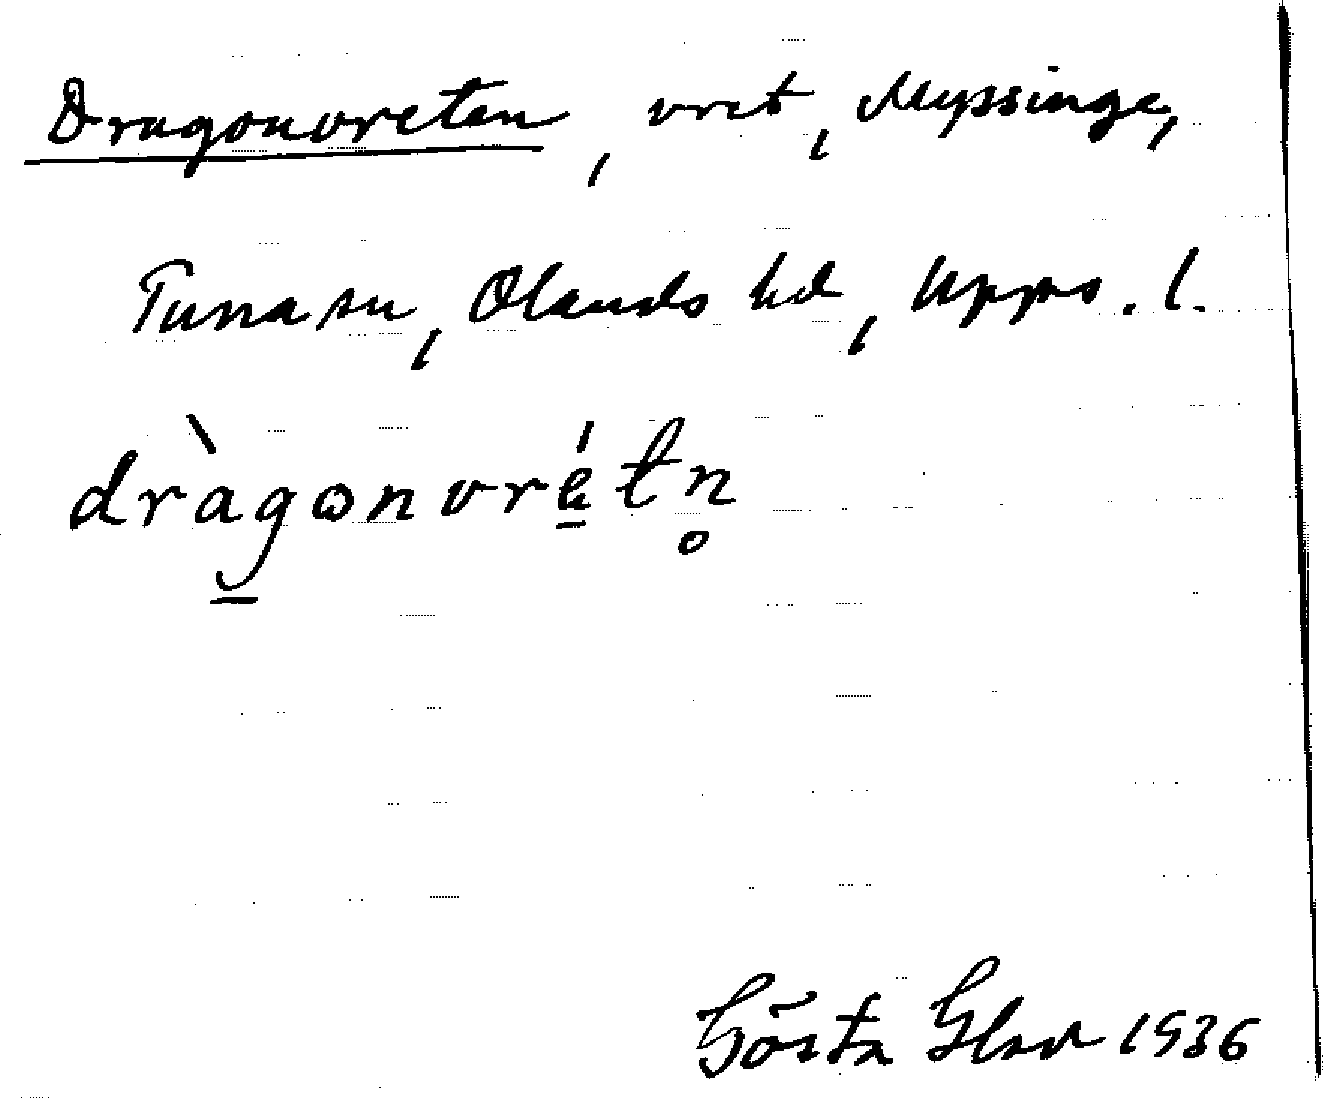 Dragonvreten, vret, Myssinge,
Tuna sn, Olands hd, Upps. l.
dràgωnvrétn̥
Gösta Glad 1936